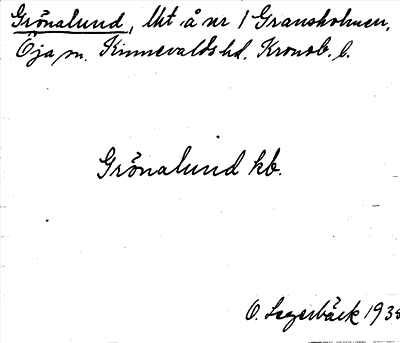 Grönalund, lht å nr 1 Gransholmen,
Öja sn. Kinnevalds hd. Kronob. l.
Grönalund kb.
O. Lagerbäck 193